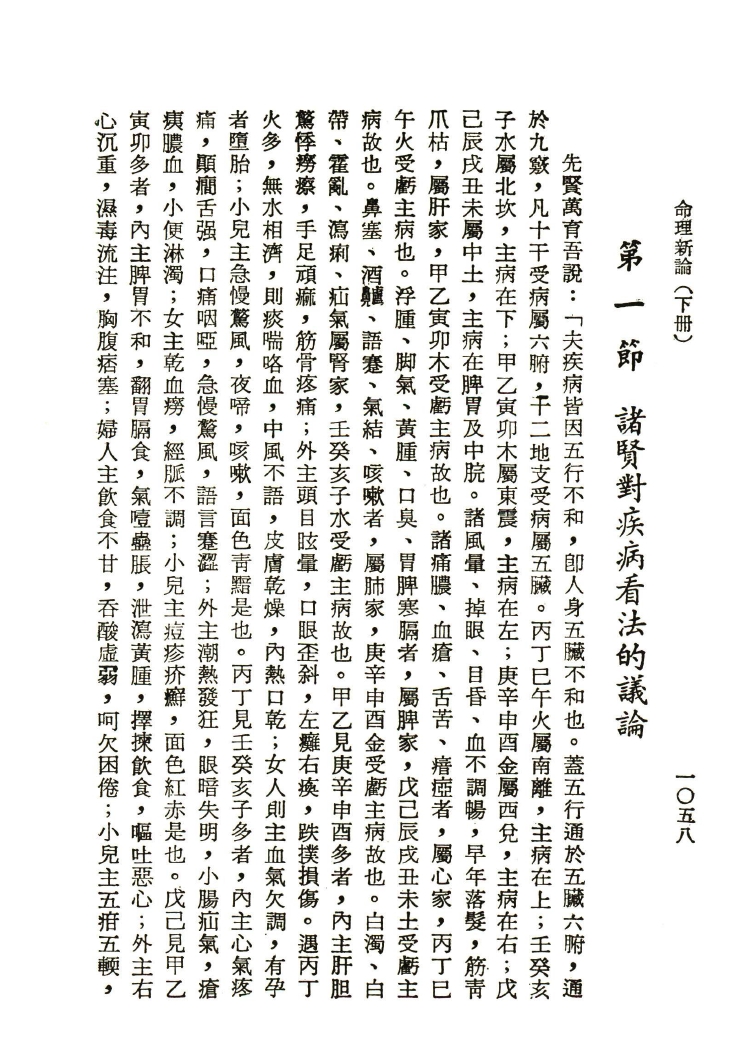 命理新論（下册）
一〇五八
第一節　諸賢對疾病看法的議論
先賢萬育吾說：「夫疾病皆因五行不和，卽人身五臟不和也。蓋五行通於五臟六腑，通
於九竅，凡十干受病屬六腑，十二地支受病屬五臟。丙丁巳午火屬南離，主病在上；壬癸亥
子水屬北坎，主病在下；甲乙寅卯木屬東震，主病在左；庚辛申酉金屬西兌，主病在右；戊
己辰戌丑未屬中土，主病在脾胃及中脘。諸風暈、掉眼、目昏、血不調暢，早年落髮，筋靑
爪枯，屬肝家，甲乙寅卯木受虧主病故也。諸痛膿、血瘡、舌苦、瘖瘂者，屬心家，丙丁巳
午火受虧主病也。浮腫、脚氣、黃腫、口臭、胃脾寒膈者，屬脾家，戊己辰戌丑未土受虧主
病故也。鼻塞、酒齇、語蹇、氣結、咳嗽者，屬肺家，庚辛申酉金受虧主病故也。白濁、白
帶、霍亂、瀉痢、疝氣屬腎家，壬癸亥子水受虧主病故也。甲乙見庚辛申酉多者，內主肝胆
驚悸癆瘵，手足頑痲，筋骨疼痛；外主頭目眩暈，口眼歪斜，左癱右瘓，跌撲損傷。遇丙丁
火多，無水相濟，則痰喘咯血，中風不語，皮膚乾燥，內熱口乾；女人則主血氣欠調，有孕
者墮胎；小兒主急慢驚風，夜啼，咳嗽，面色靑黯是也。丙丁見壬癸亥子多者，內主心氣疼
痛，顚癎舌强，口痛咽啞，急慢驚風，語言蹇澀；外主潮熱發狂，眼暗失明，小腸疝氣，瘡
痍膿血，小便淋濁；女主乾血癆，經脈不調；小兒主痘疹疥癬，面色紅赤是也。戊己見甲乙
寅卯多者，內主脾胃不和，翻胃膈食，氣噎蠱脹，泄瀉黃腫，擇揀飮食，嘔吐惡心；外主右
心沉重，濕毒流注，胸腹痞塞；婦人主飮食不甘，吞酸虛弱，呵欠困倦；小兒主五疳五輭，